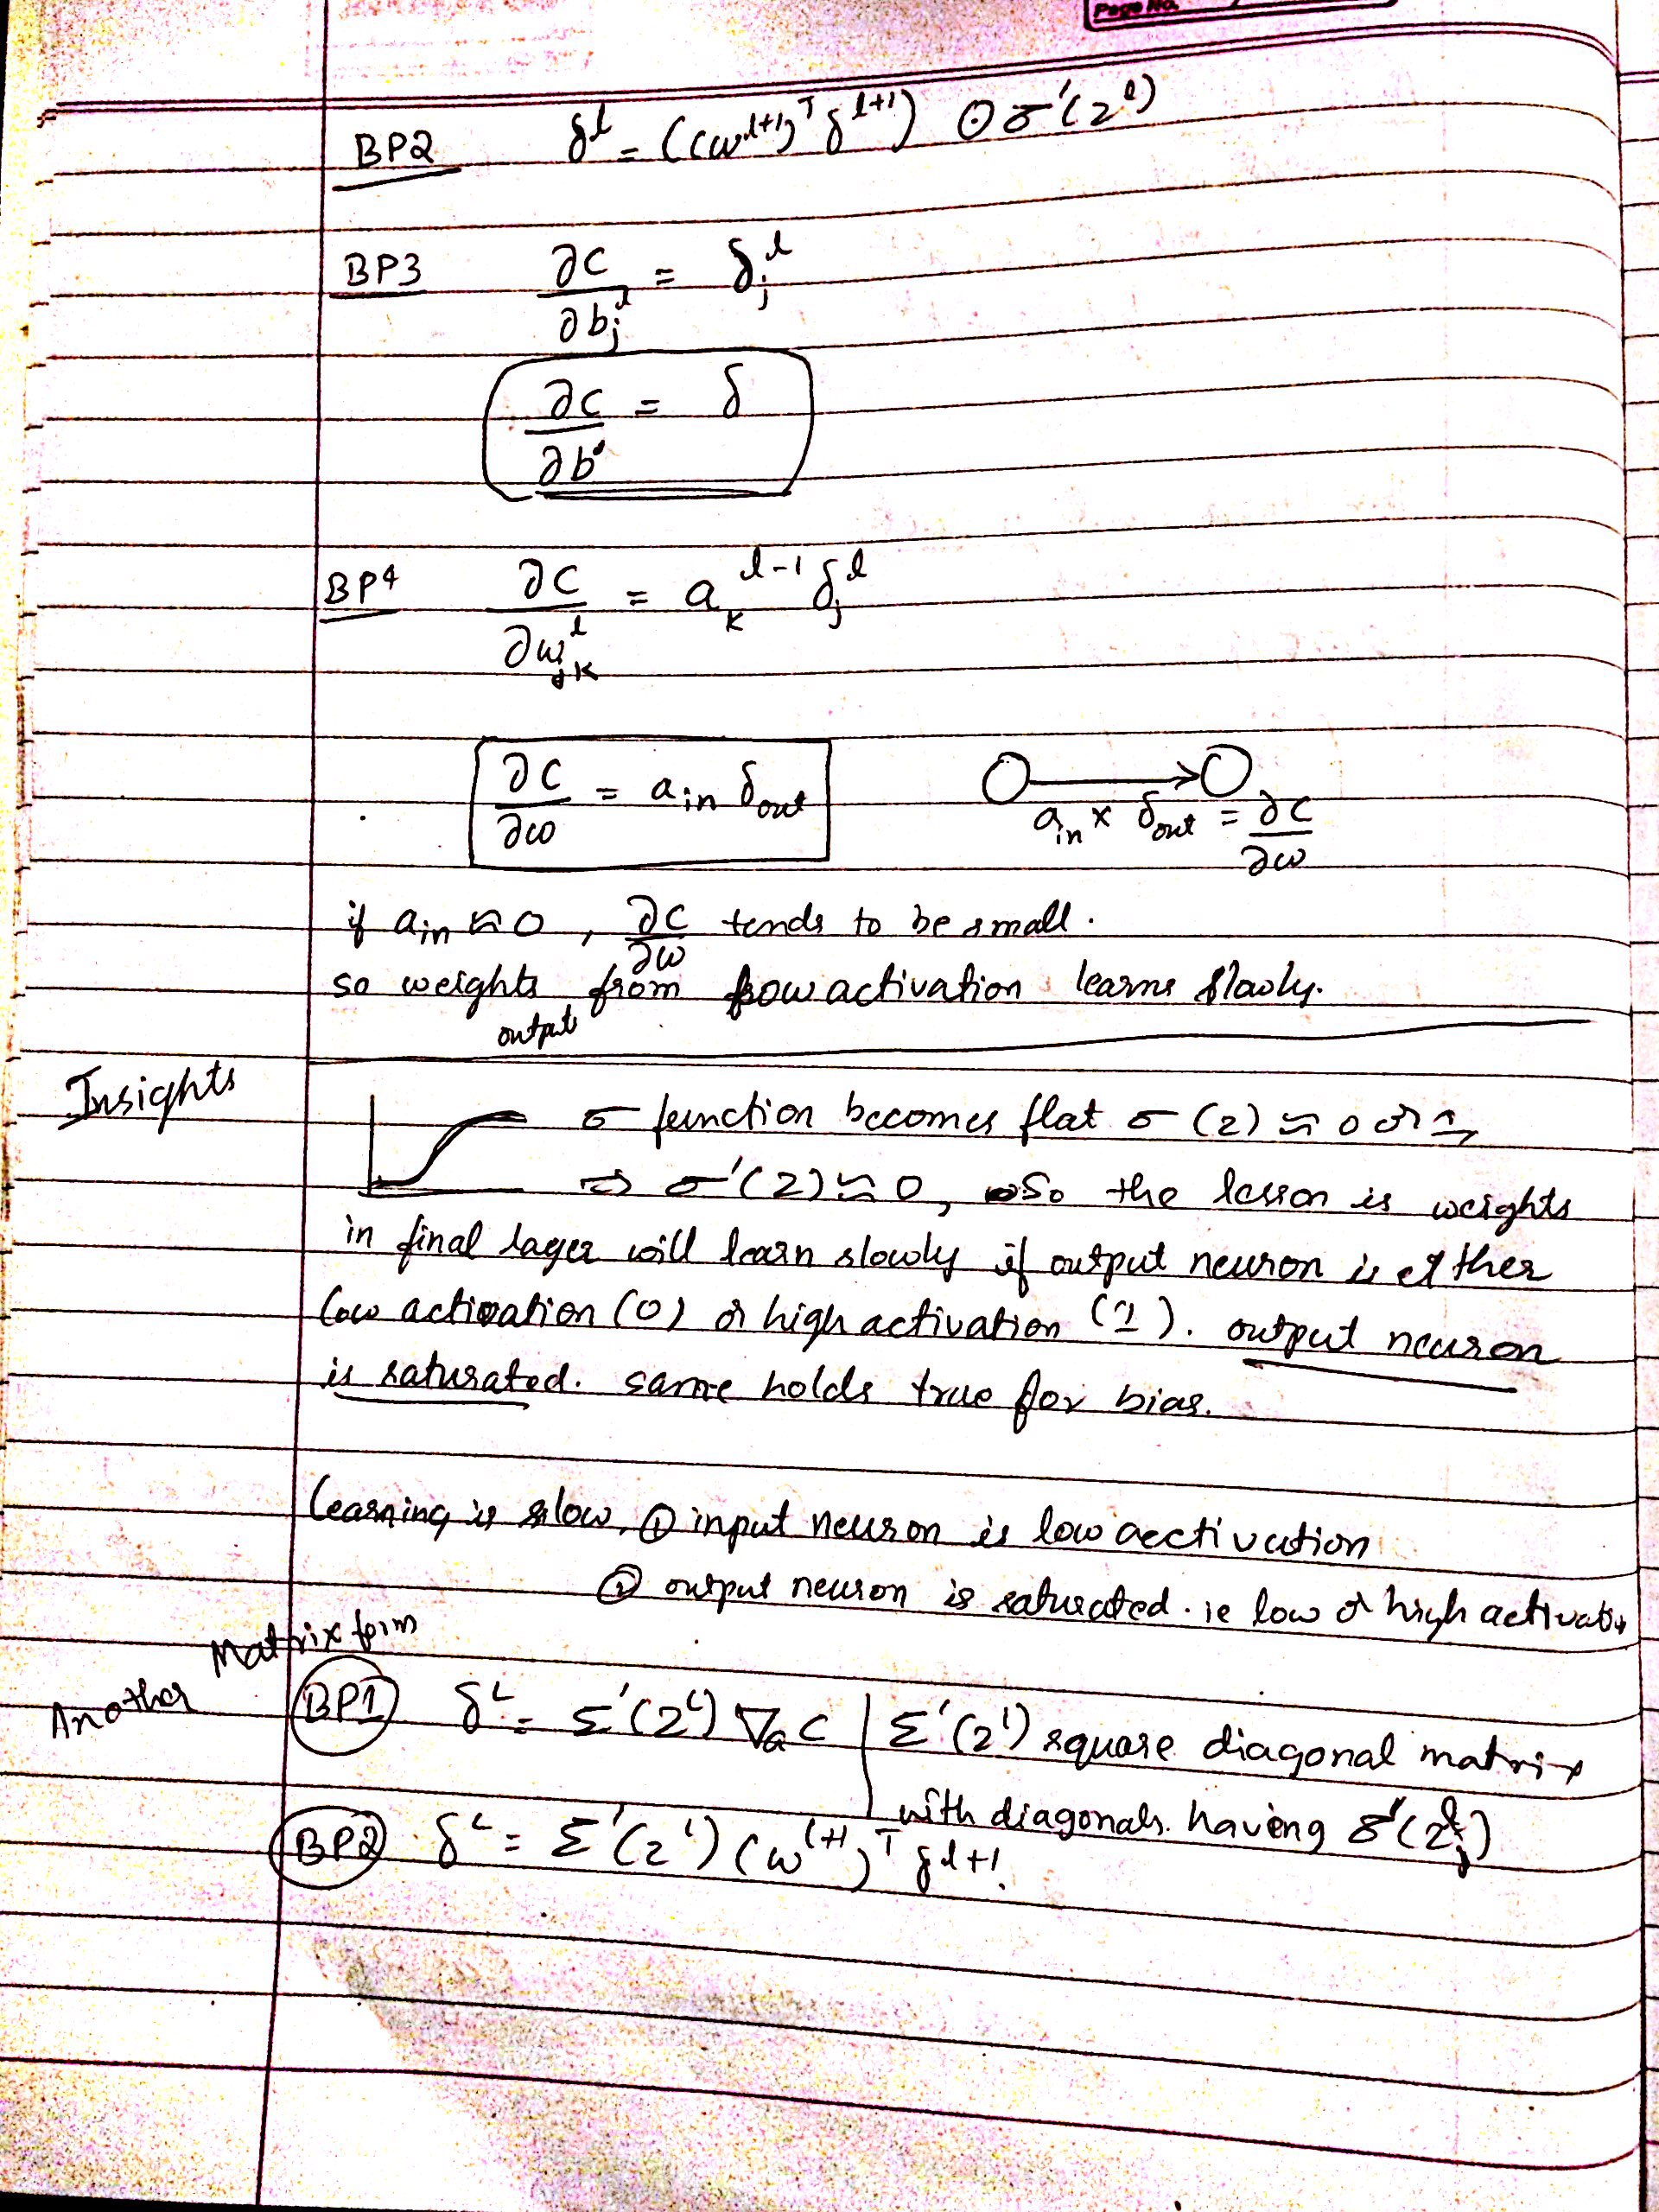 Page No.
BP2 δ^l = ((w^{l+1})^T δ^{l+1}) ⊙ σ'(z^l)
BP3 ∂C/∂b_j^l = δ_j^l
∂C/∂b = δ
BP4 ∂C/∂w_{jk}^l = a_k^{l-1} δ_j^l
∂C/∂w = a_in δ_out
a_in × δ_out = ∂C/∂w
if a_in ≈ 0, ∂C/∂w tends to be small.
so weights output from low activation learns slowly.
Insights
σ function becomes flat σ(z) ≈ 0 or 1,
⇒ σ'(z) ≈ 0, so the lesson is weights
in final layer will learn slowly if output neuron is either
low activation (0) or high activation (1). output neuron
is saturated. same holds true for bias.
Learning is slow, ① input neuron is low activation
② output neuron is saturated. ie low or high activatn
Another Matrix form
BP1 δ^L = Σ'(z^L) ∇_a C | Σ'(z^l) square diagonal matrix
with diagonals having σ'(z_j^l)
BP2 δ^L = Σ'(z^l) (w^{l+1})^T δ^{l+1}.